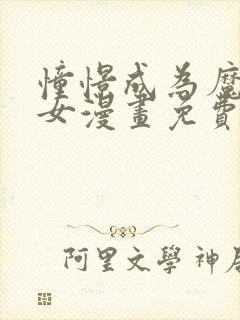 憧憬成為魔
女漫畫免費
阿里文學神居